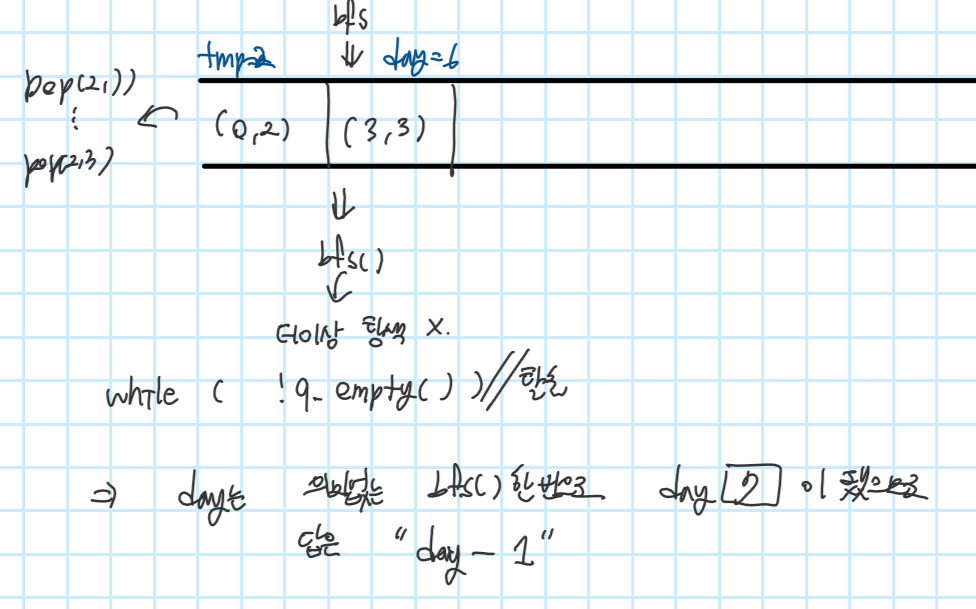 bfs
⇓
tmp=2 day=6
pop(2,1))
⋮
pop(2,3)
(0,2) (3,3)
⇓
bfs()
더이상 탐색 X.
while ( !q_empty() ) // 탈출
⇒ day는 의미없는 bfs() 한번으로 day 7 이 됐으므로
답은 "day - 1"